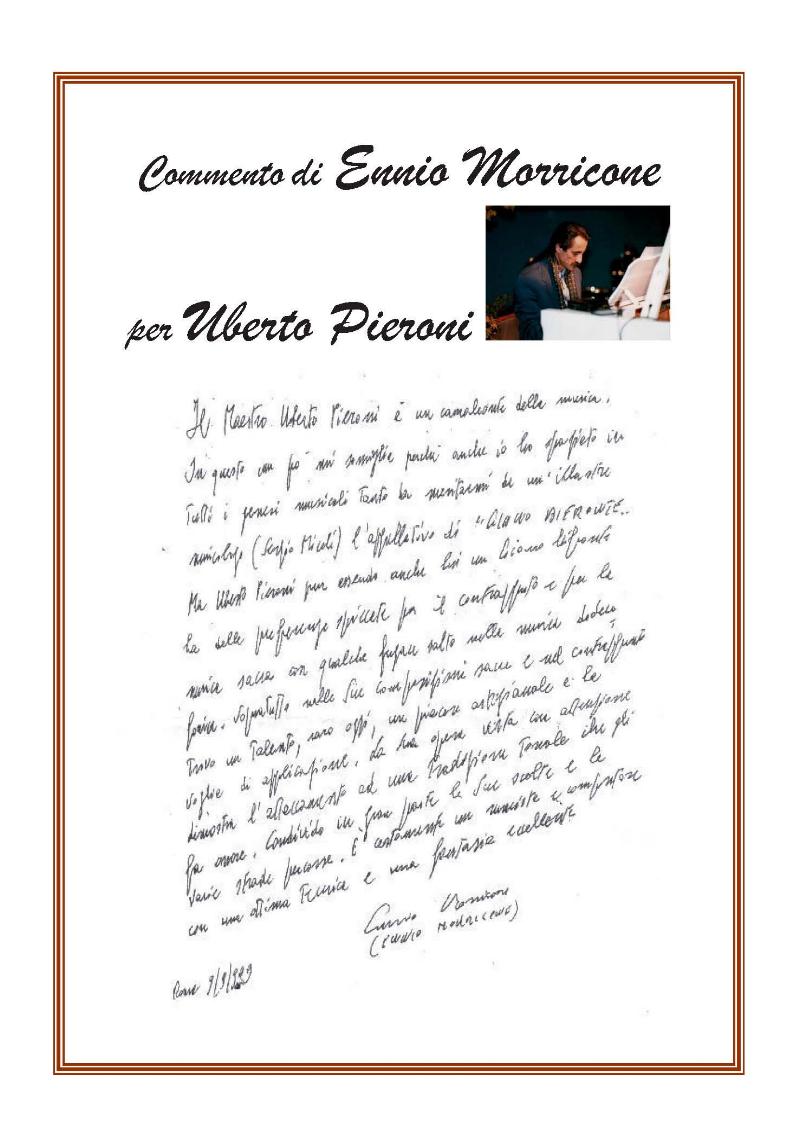 Commento di Ennio Morricone
per Uberto Pieroni
Il Maestro Uberto Pieroni è un camaleonte della musica.
In questo un po' mi somiglia perché anche io ho spaziato in
tutti i generi musicali tanto da meritarmi da un' illustre
musicologo (Sergio Miceli) l'appellativo di "GIANO BIFRONTE"
Ma Uberto Pieroni pur essendo anche lui un Giano bifronte
ha delle preferenze spiccate per il contrappunto e per la
musica sacra con qualche fugace salto nella musica dodeca
fonica. Sopratutto nelle sue composizioni sacre e nel contrappunto
trovo un talento, raro oggi, un piacere artigianale e la
voglia di applicazione. La sua opera vista con attenzione
dimostra l'attaccamento ad una tradizione tonale che gli
fa onore. Condivido in gran parte le sue scelte e le
varie strade percorse. E' certamente un musicista e compositore
con una ottima tecnica e una fantasia eccellente
Ennio Morricone
(ENNIO MORRICONE)
Roma 9/9/